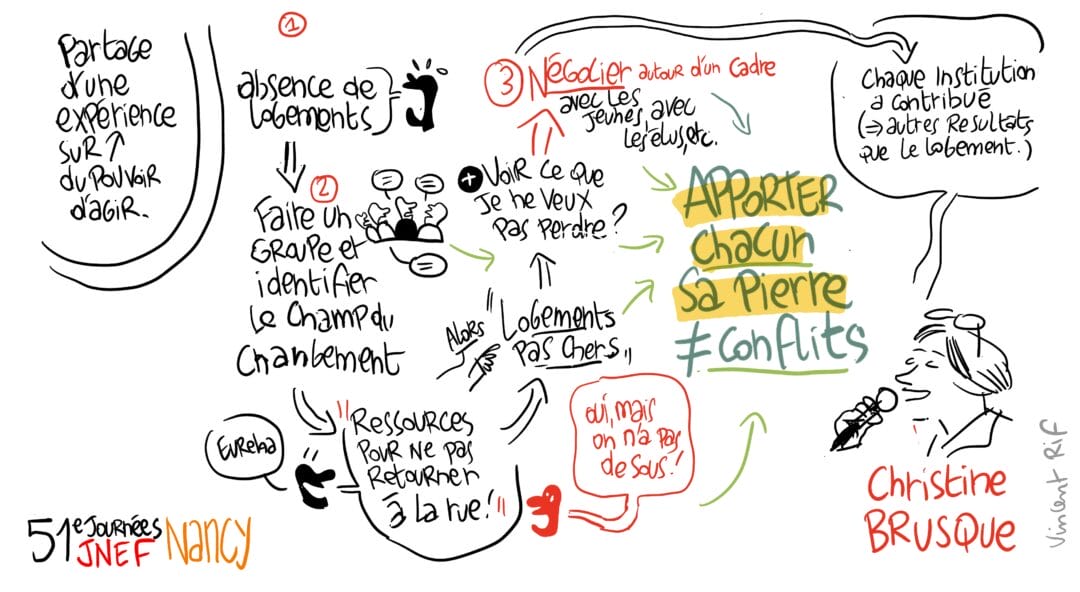 Partage
d'une
expérience
sur ↗
du pouvoir
d'agir.
1
absence de
logements
2
Faire un
groupe et
identifier
le champ du
changement
Eureka
"Ressources
pour ne pas
retourner
à la rue!"
oui, mais
on n'a pas
de sous!
Alors
"Logements
pas chers"
+ Voir ce que
je ne veux
pas perdre?
3 Négocier autour d'un cadre
avec les
jeunes, avec
les élus, etc.
APPORTER
chacun
sa pierre
≠ conflits
Chaque institution
a contribué
(⇒ autres résultats
que le logement.)
Christine
BRUSQUE
Vincent Rif
51e Journées
JNEF Nancy